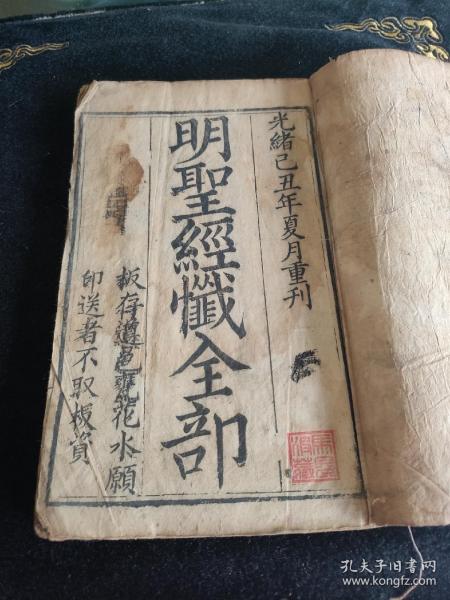 光緒己丑年夏月重刊
明聖經懺全部
板存遵邑 花水願
印送者不取板資
孔夫子旧书网
www.kongfz.com